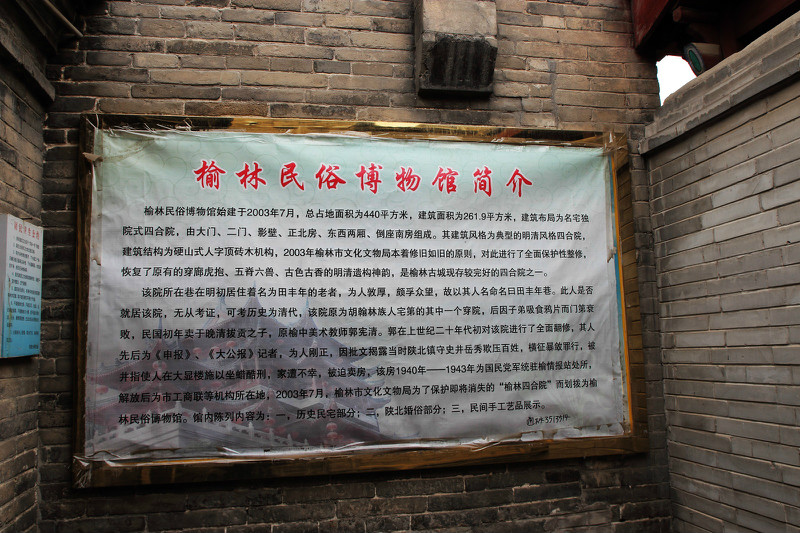 榆林民俗博物馆简介
榆林民俗博物馆始建于2003年7月，总占地面积为440平方米，建筑面积为261.9平方米，建筑布局为名宅独
院式四合院，由大门、二门、影壁、正北房、东西两厢、倒座南房组成。其建筑风格为典型的明清风格四合院，
建筑结构为硬山式人字顶砖木机构，2003年榆林市文化文物局本着修旧如旧的原则，对此进行了全面保护性整修，
恢复了原有的穿廊虎抱、五脊六兽、古色古香的明清遗构神韵，是榆林古城现存较完好的四合院之一。
该院所在巷在明初居住着名为田丰年的老者，为人敦厚，颇孚众望，故以其人名命名曰田丰年巷。此人是否
就居该院，无从考证，可考历史为清代，该院原为胡翰林族人宅第的其中一个穿院，后因子弟吸食鸦片而门第衰
败，民国初年卖于晚清拔贡之子，原榆中美术教师郭宪清。郭在上世纪二十年代初对该院进行了全面翻修，其人
先后为《申报》、《大公报》记者，为人刚正，因批文揭露当时陕北镇守史井岳秀欺压百姓，横征暴敛罪行，被
井指使人在大显楼施以坐蜡酷刑，家遭不幸，被迫卖房，该房1940年——1943年为国民党军统驻榆情报站处所，
解放后为市工商联等机构所在地，2003年7月，榆林市文化文物局为了保护即将消失的“榆林四合院”而划拨为榆
林民俗博物馆。馆内陈列内容为：一，历史民宅部分；二，陕北婚俗部分；三，民间手工艺品展示。